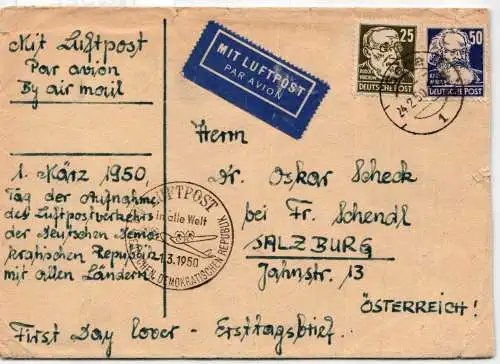 Mit Luftpost
Par avion
By air mail
MIT LUFTPOST
PAR AVION
25
DEUTSCHE POST
50
DEUTSCHE POST
24.2.50
1
1. März 1950
Tag der Aufnahme
des Luftpostverkehrs
der Deutschen Demo-
kratischen Republik
mit allen Ländern
LUFTPOST
in alle Welt
1.3.1950
DEUTSCHEN DEMOKRATISCHEN REPUBLIK
Herrn
Dr. Oskar Scheck
bei Fr. Schendl
SALZBURG
Jahnstr. 13
ÖSTERREICH!
First Day Cover - Ersttagsbrief.